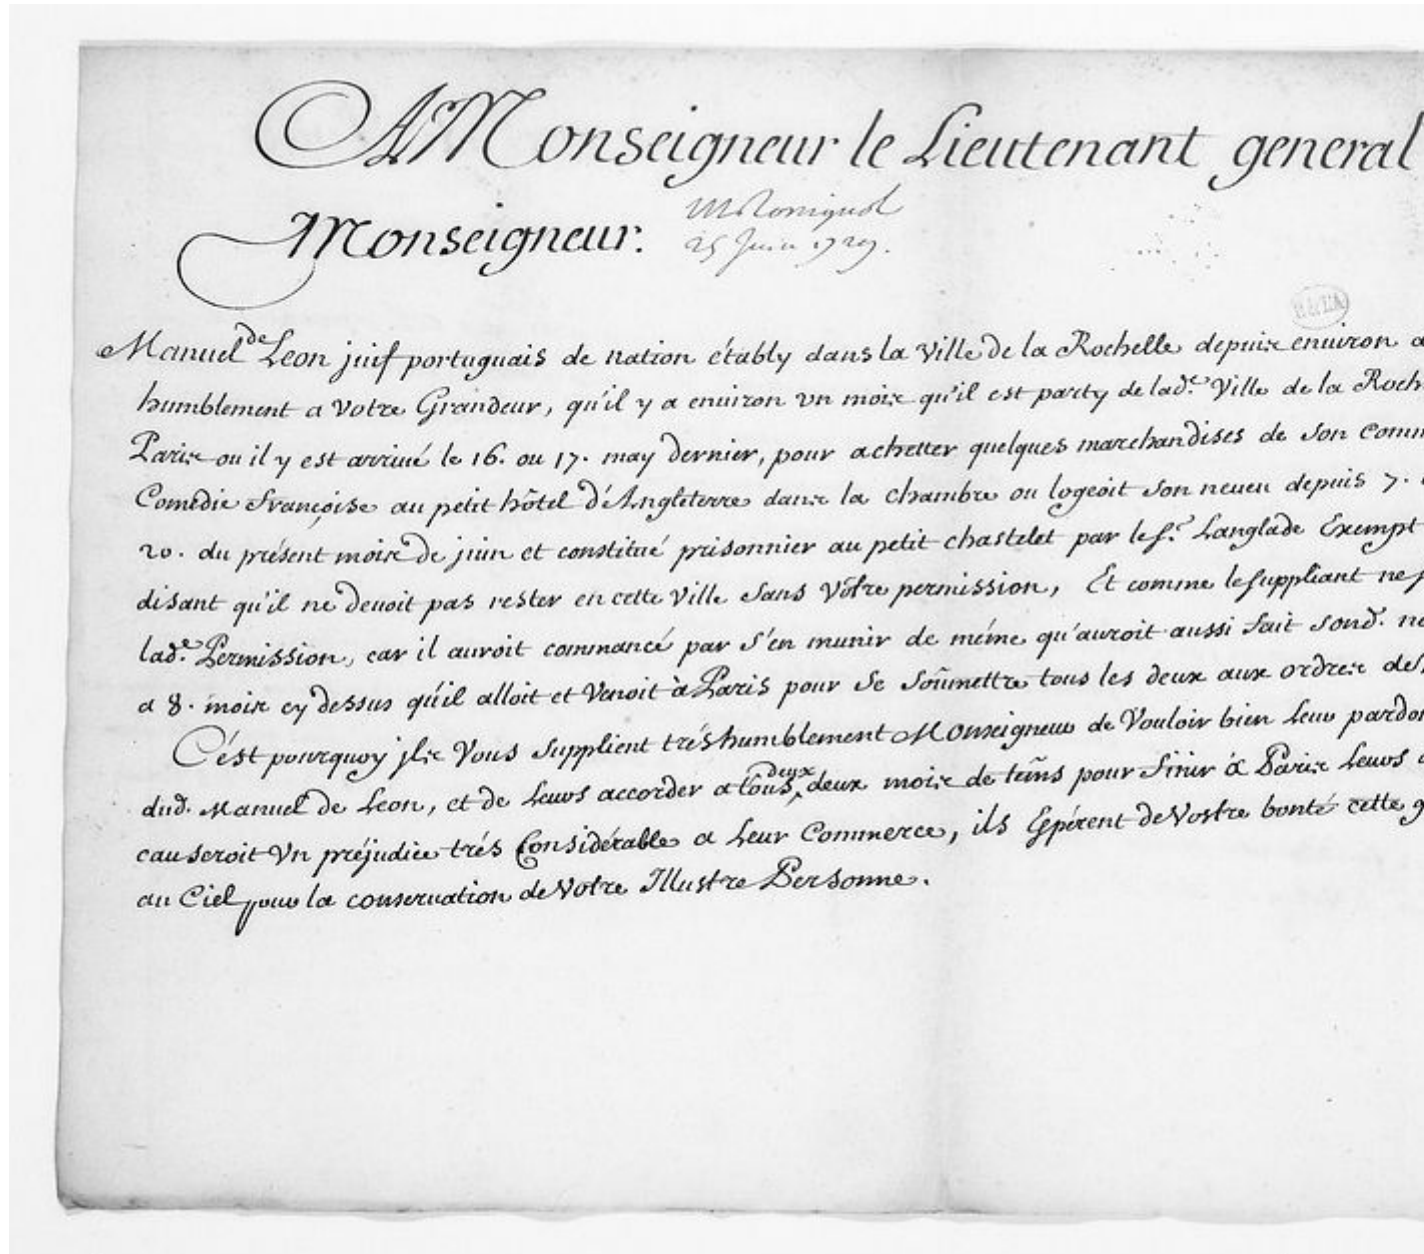 A Monseigneur le Lieutenant general
Monseigneur.
Mr Rossignol
25 Juin 1729.
Manuel de Leon juif portuguais de nation étably dans la Ville de la Rochelle depuis enuiron
humblement a Votre Grandeur, qu'il y a enuiron vn mois qu'il est party de lad.e Ville de la Roch
Paris ou il y est arriué le 16. ou 17. may dernier, pour achetter quelques marchandises de son Comm
Comédie françoise au petit hôtel d'Angleterre dans la chambre ou logeoit son neueu depuis 7.
20. du présent mois de juin et constitué prisonnier au petit chastelet par le s.r Langlade Exempt
disant qu'il ne deuoit pas rester en cette Ville sans Vôtre permission, Et comme le suppliant ne
lad.e Permission, car il auroit commancé par s'en munir de même qu'auroit aussi fait sond. ne
a 8. mois cy dessus qu'il alloit et Venoit à Paris pour se soûmettre tous les deux aux ordres de
C'est pourquoy jls Vous supplient trés humblement Monseigneur de Vouloir bien leur pardon
dud. Manuel de Leon, et de leurs accorder a tous deux deux mois de tems pour finir à Paris leurs
causeroit Vn préjudice trés Considérable a leur Commerce, ils Espérent de Vostre bonté cette g
au Ciel pour la conseruation de Votre Illustre Personne.